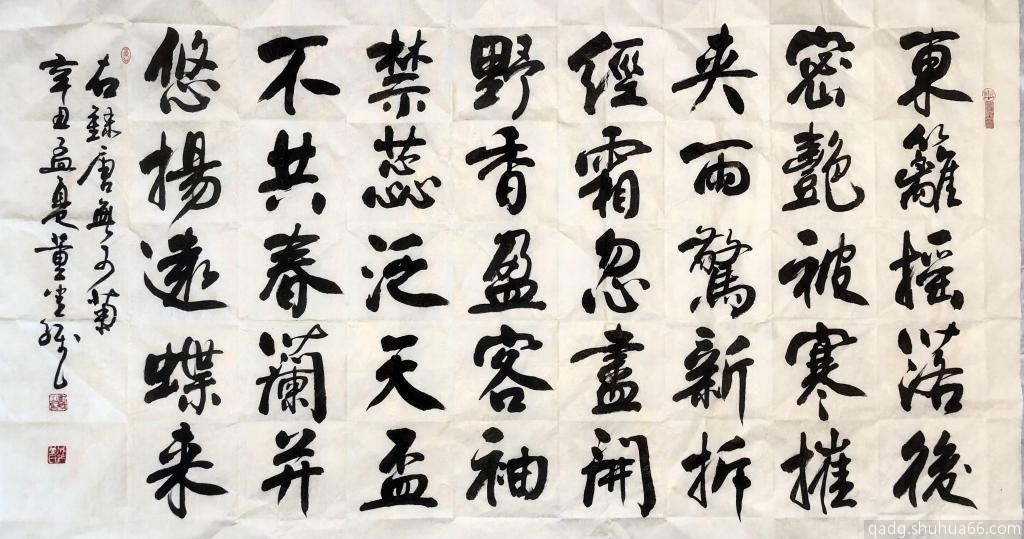 東籬摇落後
密艷被寒摧
夾雨驚新拆
經霜忽盡開
野香盈客袖
禁蕊泛天盃
不共春蘭并
悠揚遠蝶来
右録唐無可菊
辛丑孟夏董
qadg.shuhua66.com